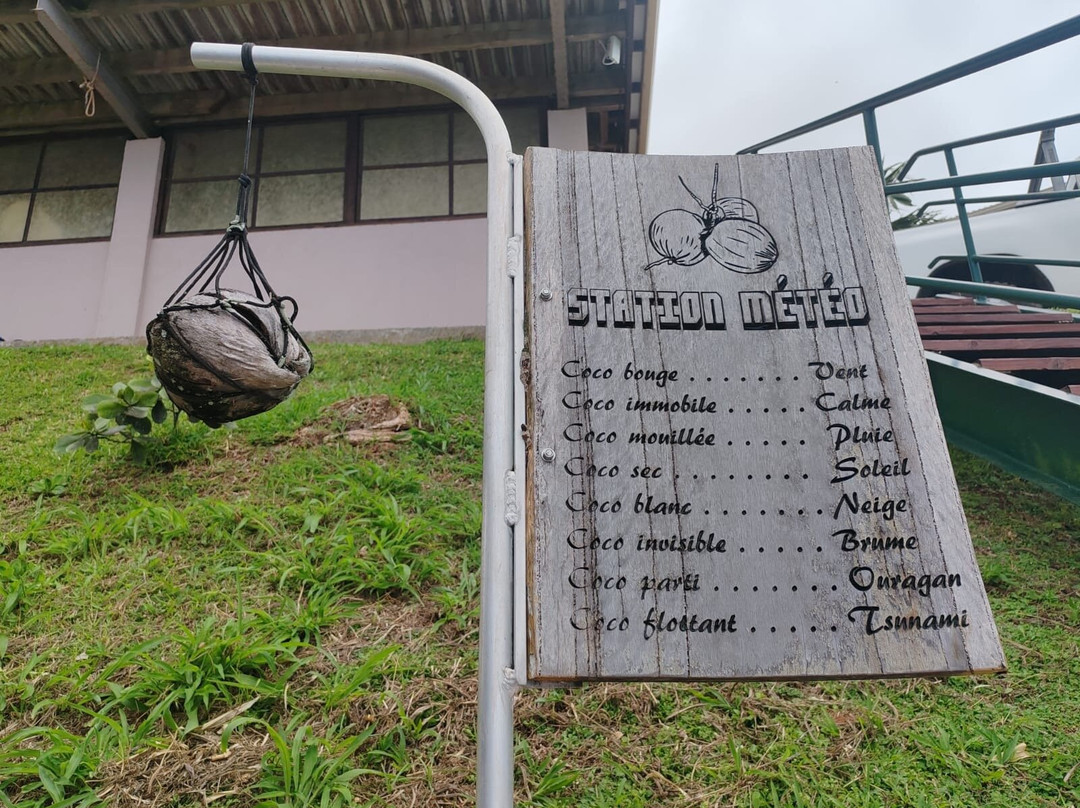 STATION MÉTÉO
Coco bouge . . . . . . . Vent
Coco immobile . . . . . Calme
Coco mouillée . . . . . Pluie
Coco sec . . . . . . . . Soleil
Coco blanc . . . . . . . Neige
Coco invisible . . . . . Brume
Coco parti . . . . . . . Ouragan
Coco flottant . . . . . Tsunami